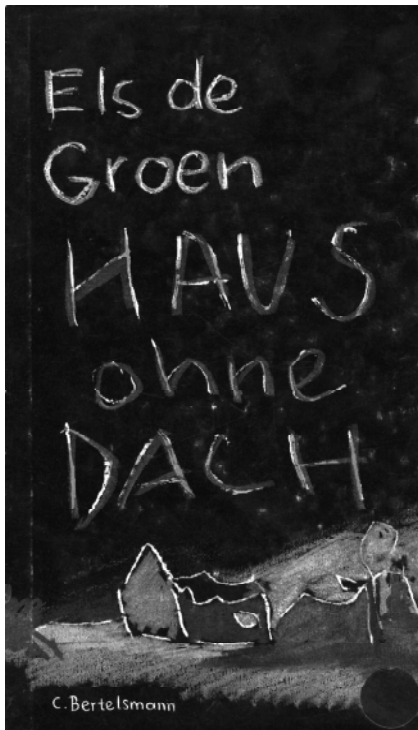 Els de
Groen
HAUS
ohne
DACH
C. Bertelsmann